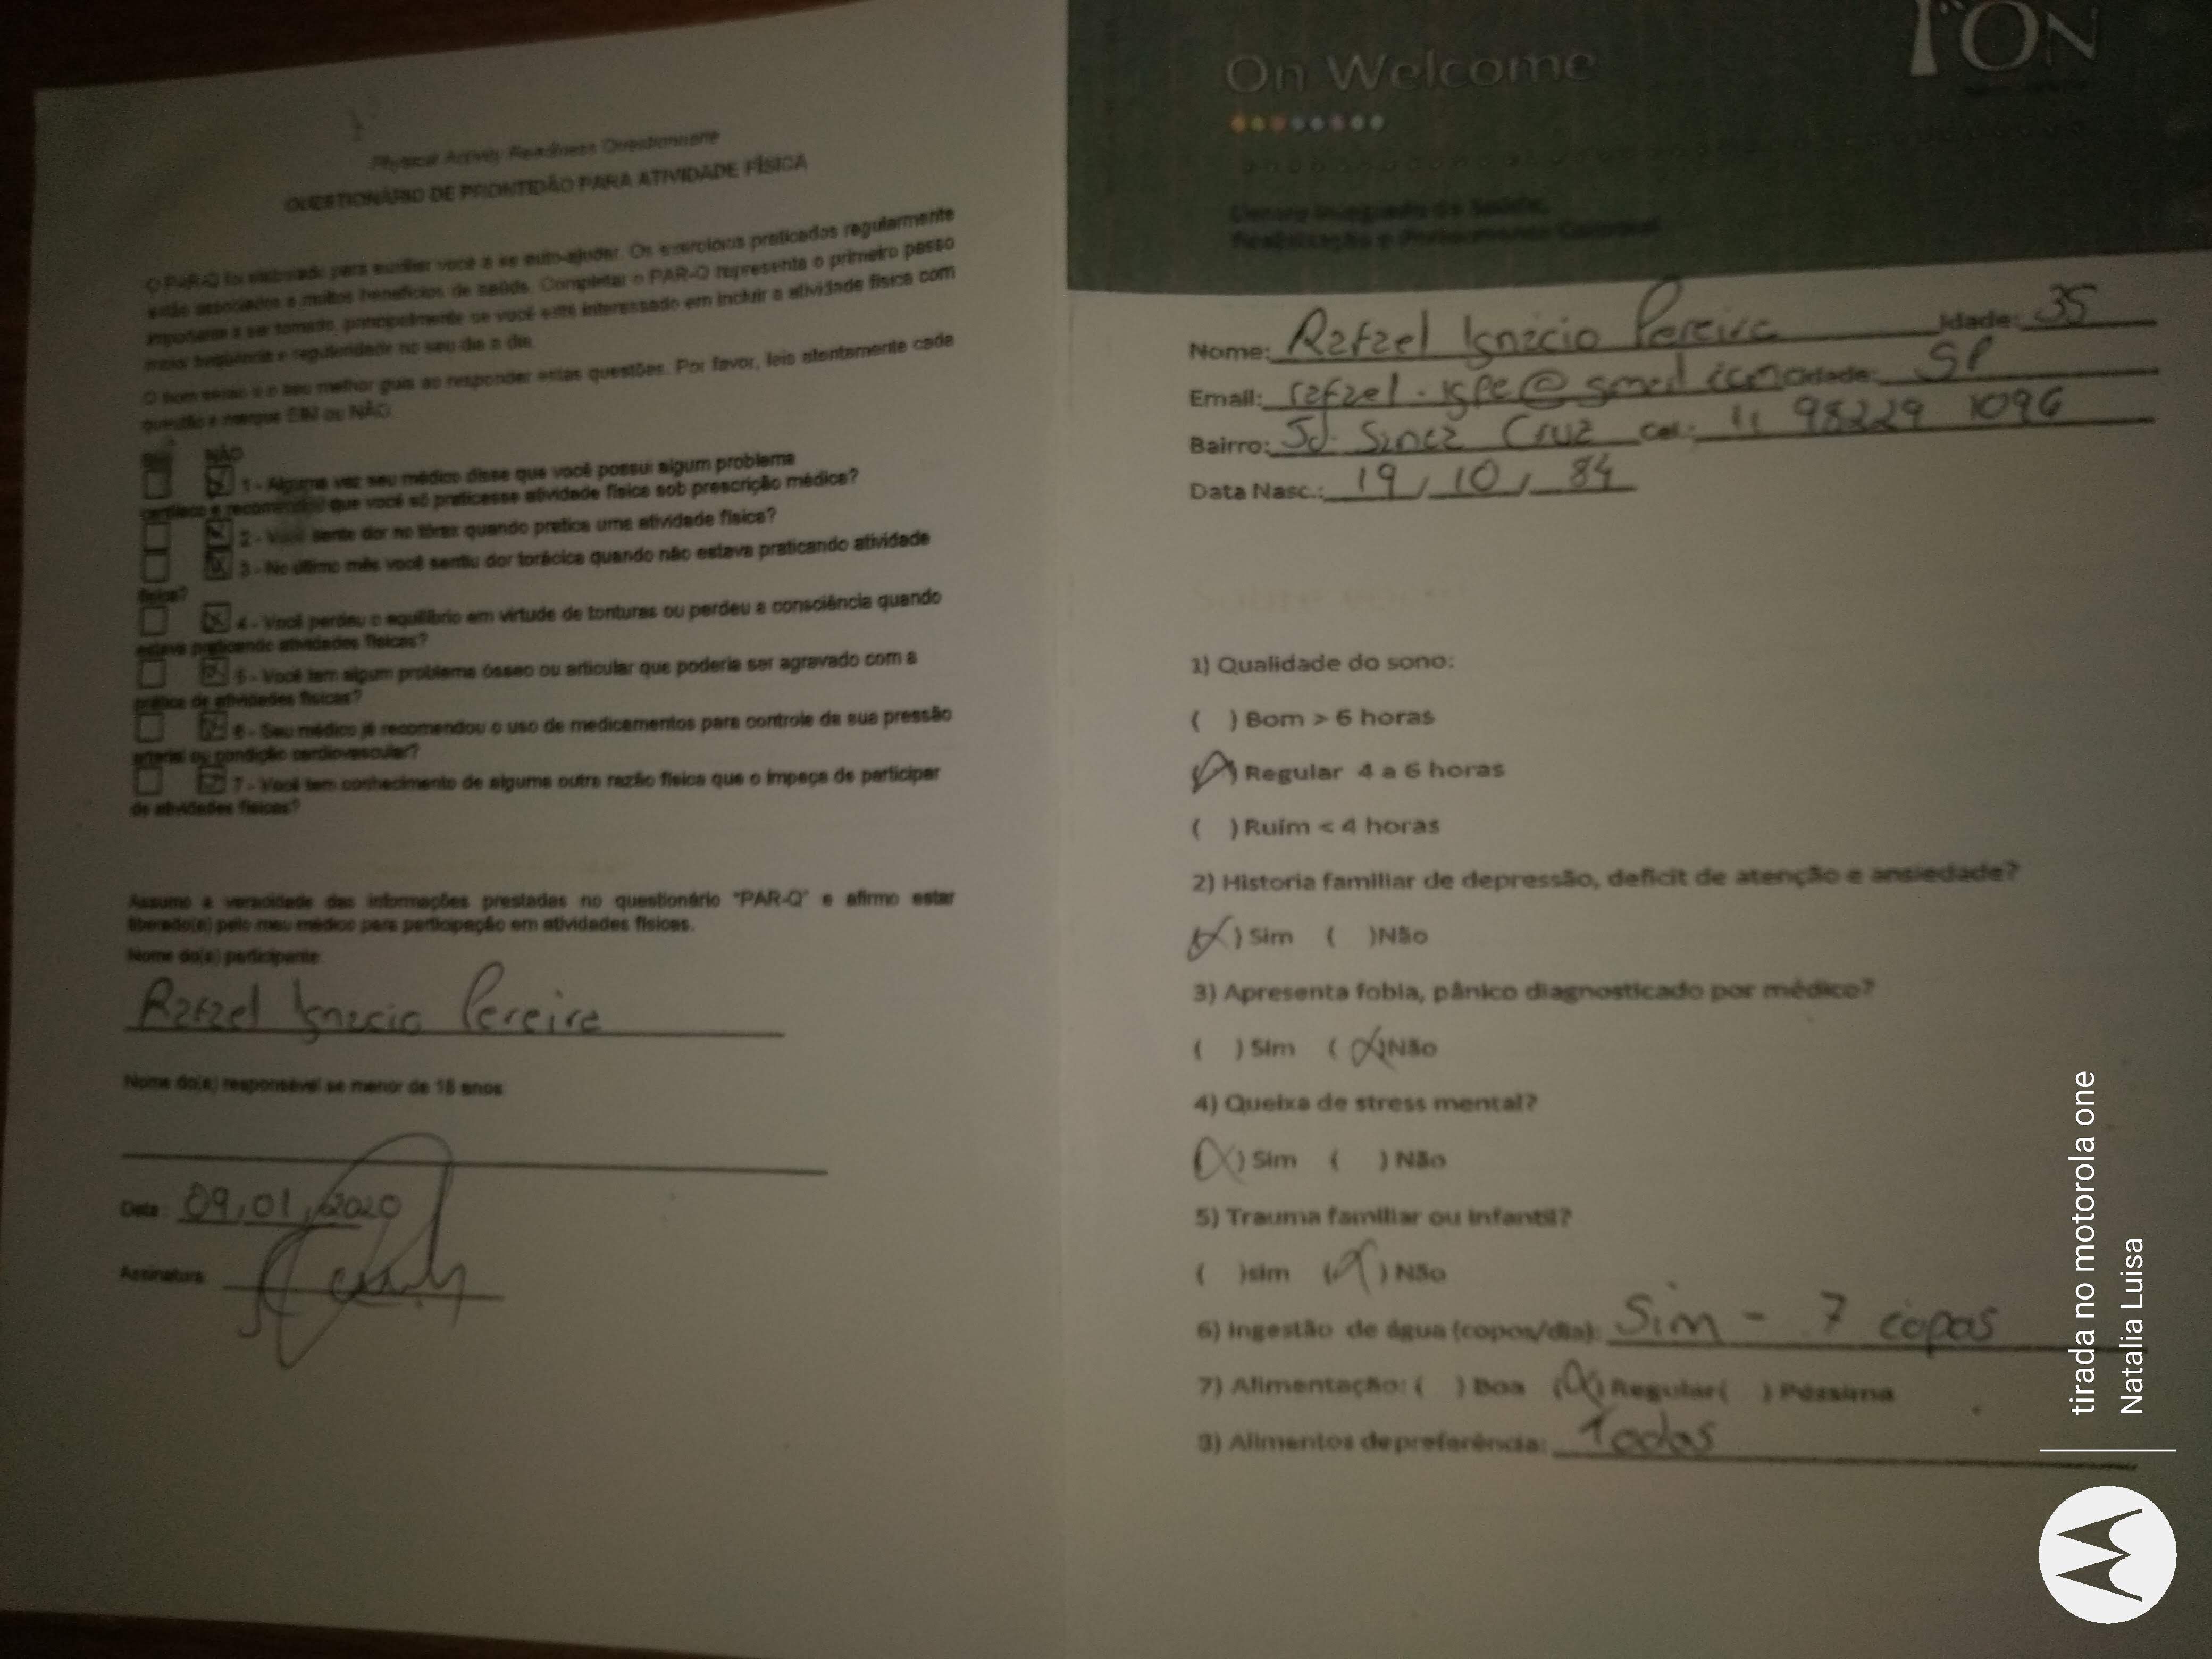 Physical Activity Readiness Questionnaire
QUESTIONÁRIO DE PRONTIDÃO PARA ATIVIDADE FÍSICA
O PAR-Q foi elaborado para auxiliar você a se auto-ajudar. Os exercícios praticados regularmente
estão associados a muitos benefícios de saúde. Completar o PAR-Q representa o primeiro passo
importante a ser tomado, principalmente se você está interessado em incluir a atividade física com
maior frequência e regularidade no seu dia a dia.
O bom senso é o seu melhor guia ao responder estas questões. Por favor, leia atentamente cada
questão e marque SIM ou NÃO.
SIM NÃO
1 - Alguma vez seu médico disse que você possui algum problema
cardíaco e recomendou que você só praticasse atividade física sob prescrição médica?
2 - Você sente dor no tórax quando pratica uma atividade física?
3 - No último mês você sentiu dor torácica quando não estava praticando atividade
física?
4 - Você perdeu o equilíbrio em virtude de tonturas ou perdeu a consciência quando
estava praticando atividades físicas?
5 - Você tem algum problema ósseo ou articular que poderia ser agravado com a
prática de atividades físicas?
6 - Seu médico já recomendou o uso de medicamentos para controle da sua pressão
arterial ou condição cardiovascular?
7 - Você tem conhecimento de alguma outra razão física que o impeça de participar
de atividades físicas?
Assumo a veracidade das informações prestadas no questionário "PAR-Q" e afirmo estar
liberado(a) pelo meu médico para participação em atividades físicas.
Nome do(a) participante:
Rafael Ignacio Pereira
Nome do(a) responsável se menor de 18 anos
Data 09,01,2020
Assinatura
On Welcome
ION
Nome: Rafael Ignacio Pereira Idade: 35
Email: SP
Bairro: Jd. Santa Cruz Cel.: 11 98229 1096
Data Nasc.: 19, 10, 84
1) Qualidade do sono:
( ) Bom > 6 horas
(X) Regular 4 a 6 horas
( ) Ruim < 4 horas
2) Historia familiar de depressão, deficit de atenção e ansiedade?
(X) Sim ( )Não
3) Apresenta fobia, pânico diagnosticado por médico?
( ) Sim (X)Não
4) Queixa de stress mental?
(X) Sim ( ) Não
5) Trauma familiar ou infantil?
( )sim (X) Não
6) Ingestão de água (copos/dia): Sim - 7 copos
7) Alimentação: ( ) Boa (X) Regular( ) Péssima
8) Alimentos de preferência: Todos
tirada no motorola one
Natalia Luisa